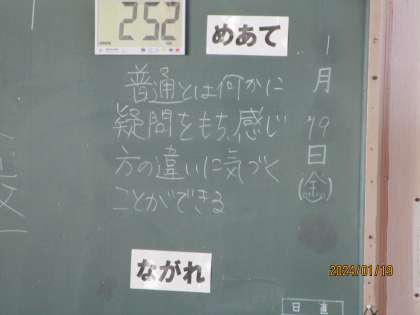 252
めあて
1月19日(金)
普通とは何かに
疑問をもち、感じ
方の違いに気づく
ことができる
ながれ
日直
2024/01/19